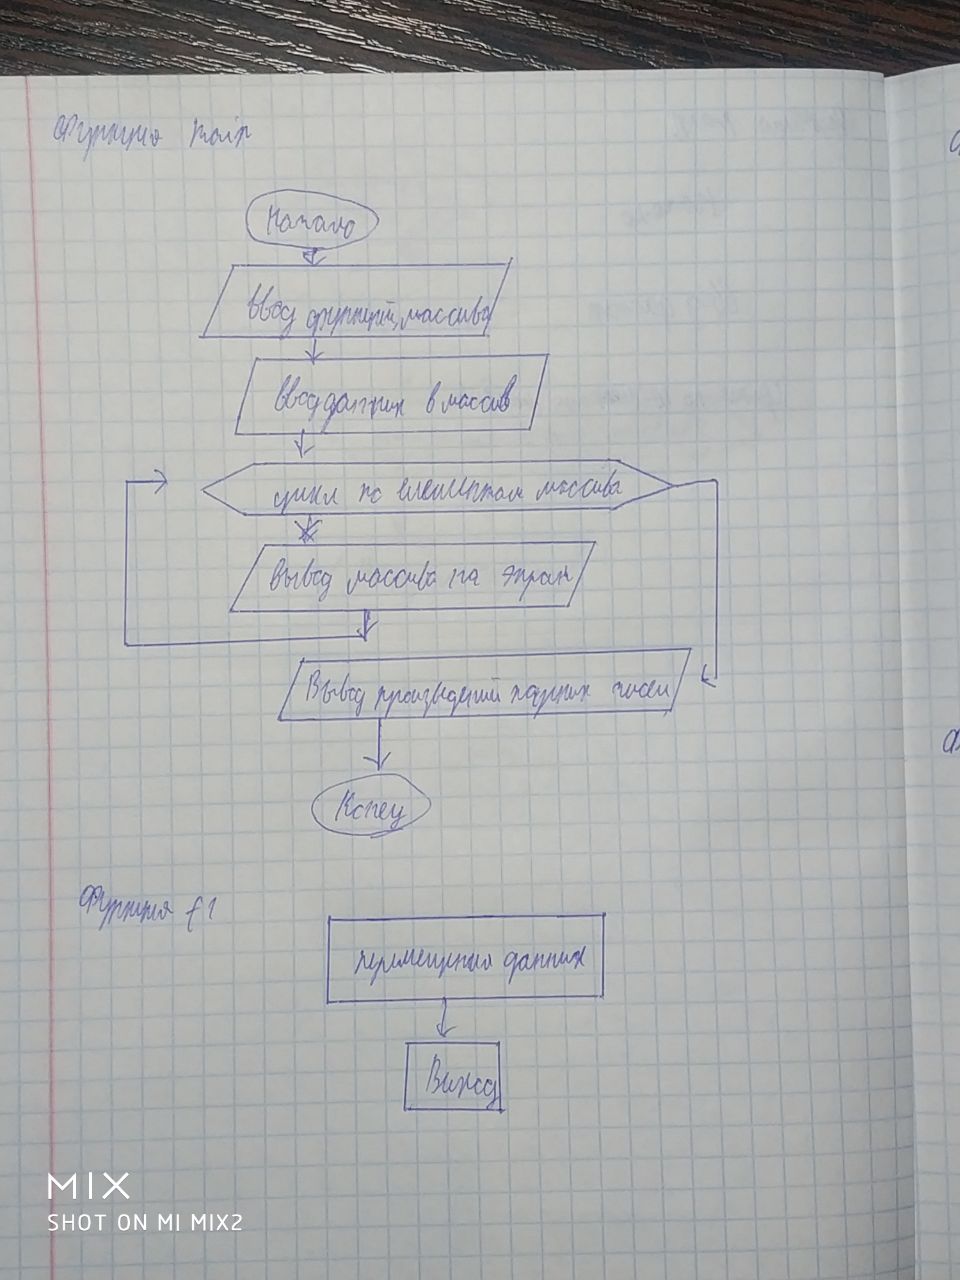 Функция main
Начало
Ввод функций, массива
Ввод данных в массив
цикл по елементам массива
Вывод массива на экран
Вывод произведений парных чисел
Конец
Функция f1
перемещения данных
Выход
MIX
SHOT ON MI MIX2